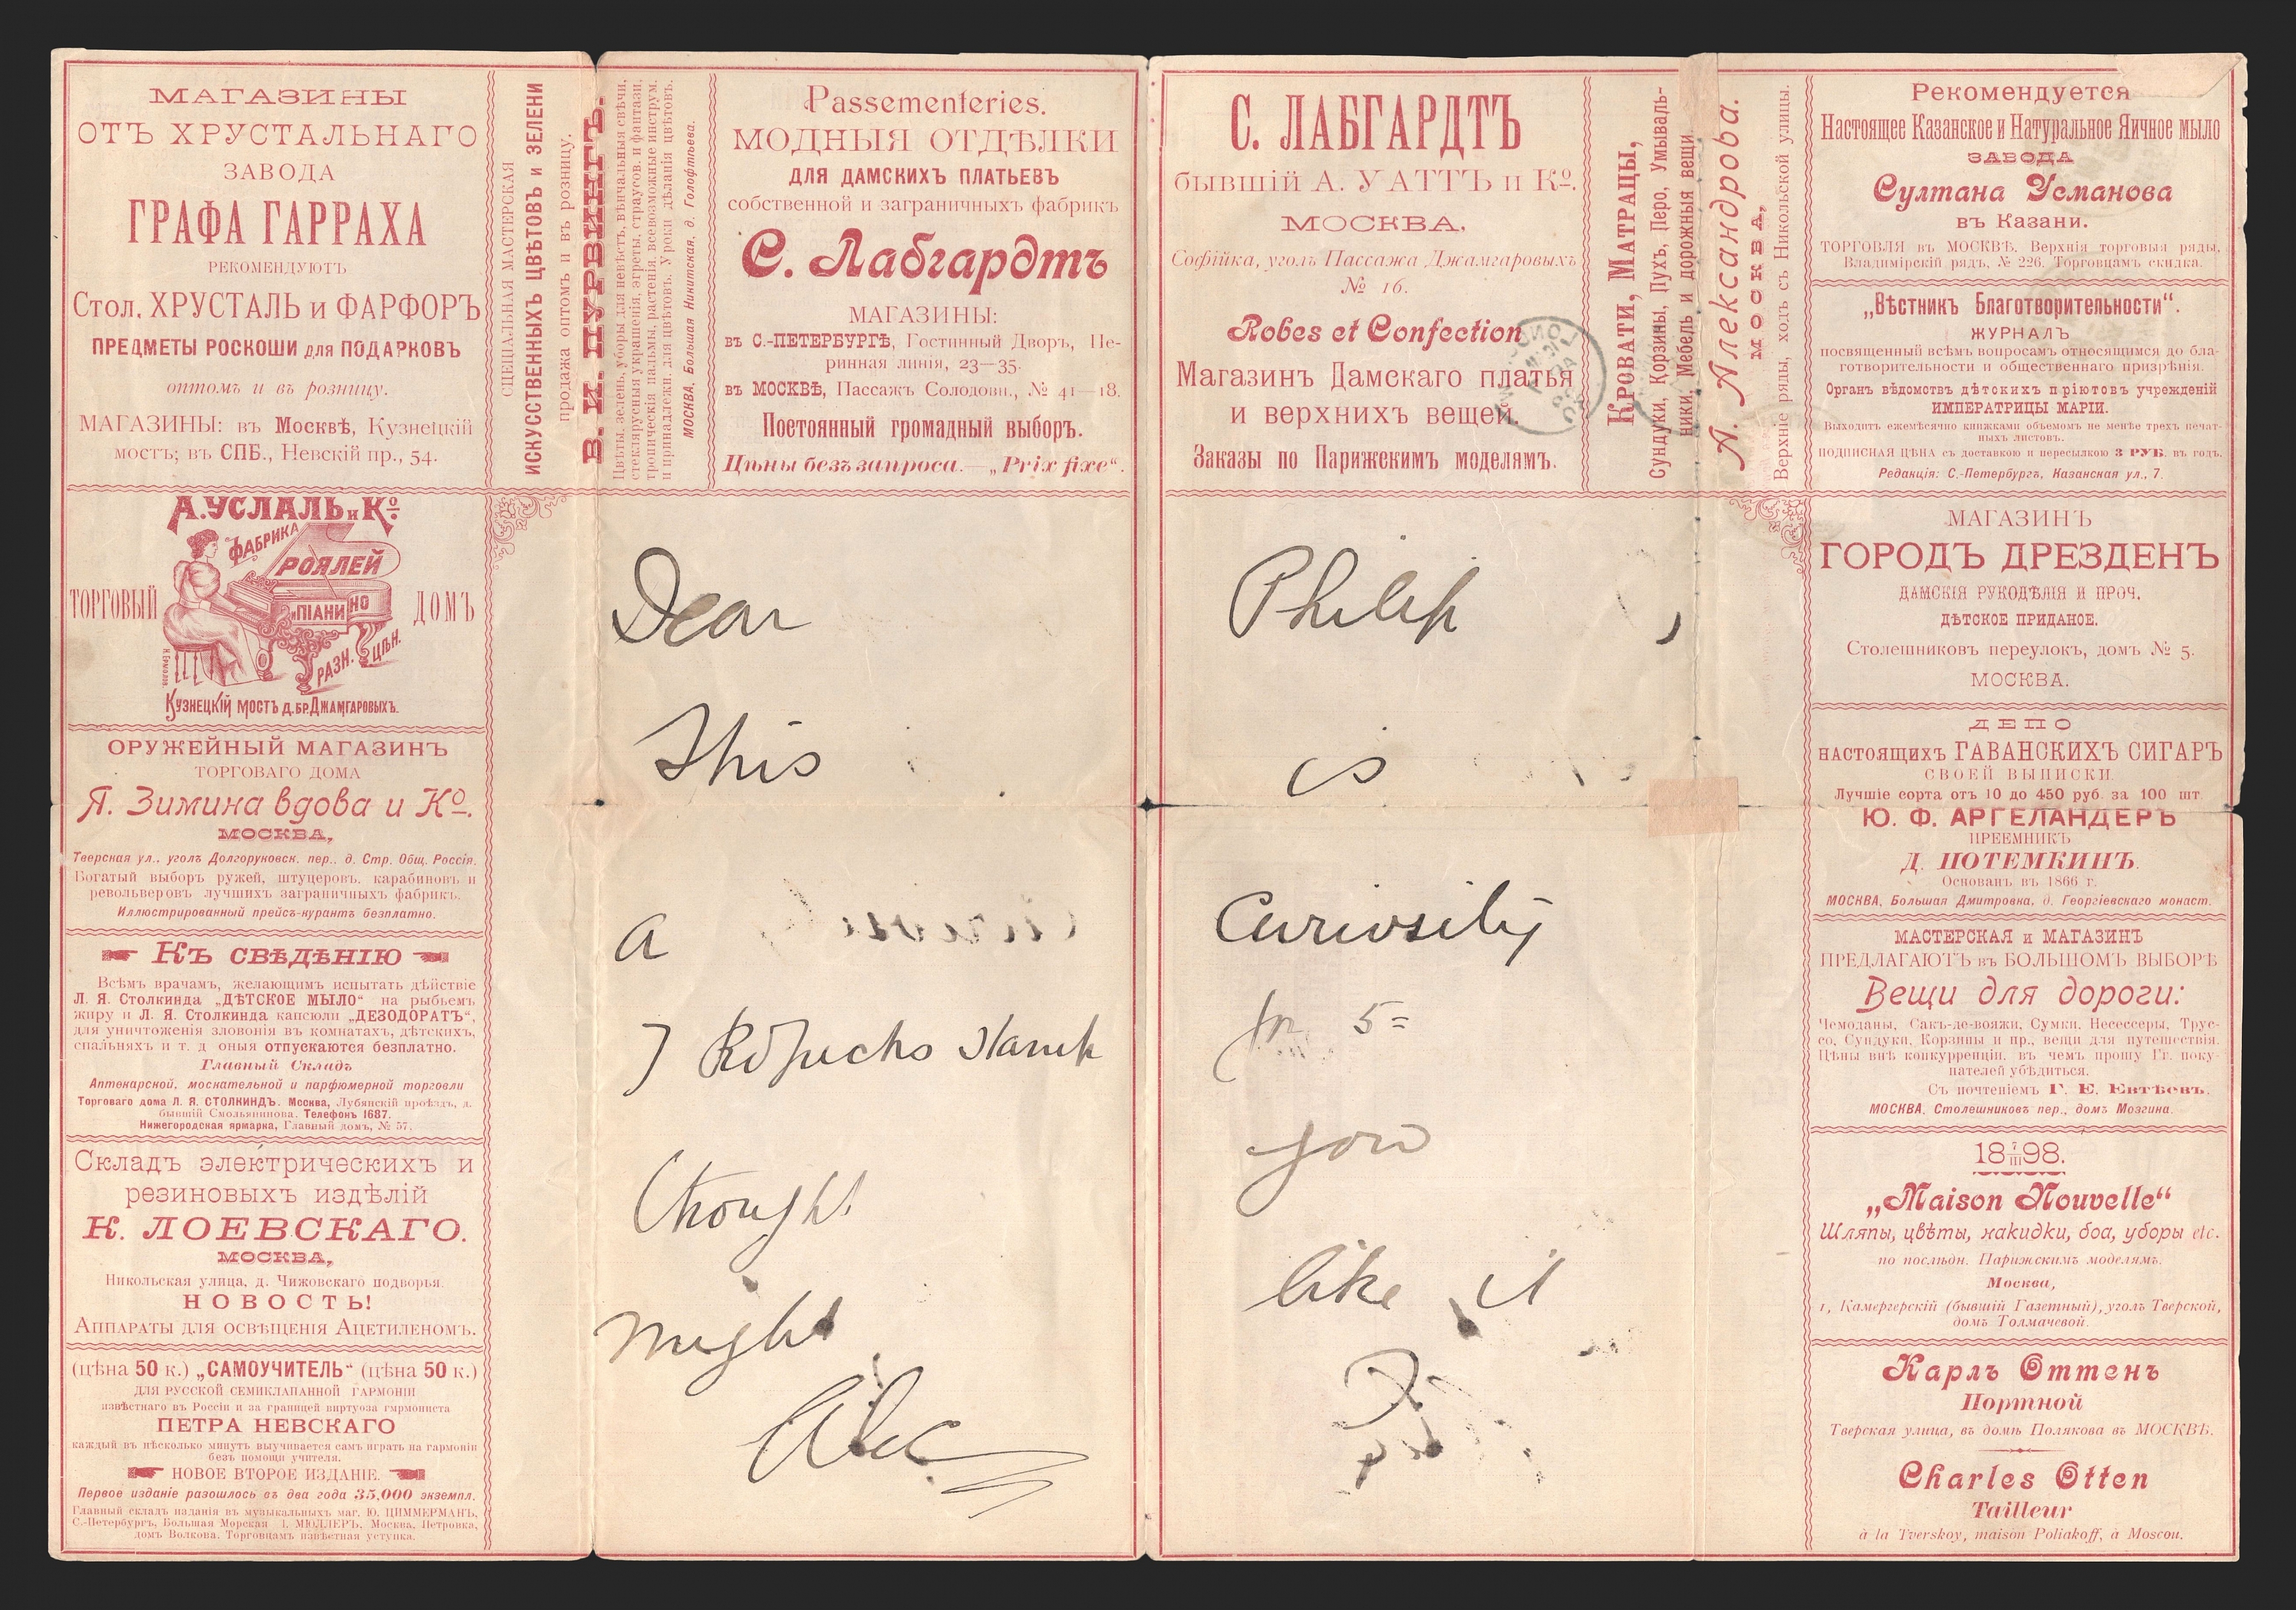 МАГАЗИНЫ
ОТЪ ХРУСТАЛЬНАГО
ЗАВОДА
ГРАФА ГАРРАХА
РЕКОМЕНДУЮТЪ
Стол. ХРУСТАЛЬ и ФАРФОРЪ
ПРЕДМЕТЫ РОСКОШИ для ПОДАРКОВЪ
оптомъ и въ розницу.
МАГАЗИНЫ: въ Москвѣ, Кузнецкій
мостъ; въ СПБ., Невскій пр., 54.
СПЕЦІАЛЬНАЯ МАСТЕРСКАЯ
ИСКУССТВЕННЫХЪ ЦВѢТОВЪ и ЗЕЛЕНИ
продажа оптомъ и въ розницу.
В. И. ПУРВИНГЪ.
Цвѣты, зелень, уборы для невѣстъ, вѣнчальныя свѣчи,
стеклярусныя украшенія, эгреты, страусов. и фантази,
тропическія пальмы, растенія, всевозможные инструм.
и принадлежн. для цвѣтовъ. Уроки дѣланія цвѣтовъ.
МОСКВА, Большая Никитская, д. Голофтѣева.
Passementeries.
МОДНЫЯ ОТДѢЛКИ
ДЛЯ ДАМСКИХЪ ПЛАТЬЕВЪ
собственной и заграничныхъ фабрикъ
С. Лабгардтъ
МАГАЗИНЫ:
въ С.-ПЕТЕРБУРГѢ, Гостинный Дворъ, Пе-
ринная линія, 23—35.
въ МОСКВѢ, Пассажъ Солодовн., № 41—18.
Постоянный громадный выборъ.
Цѣны безъ запроса.—„Prix fixe“.
С. ЛАБГАРДТЪ
бывшій А. УАТТЪ и Ко.
МОСКВА,
Софійка, уголъ Пассажа Джамгаровыхъ
№ 16.
Robes et Confection
Магазинъ Дамскаго платья
и верхнихъ вещей.
Заказы по Парижскимъ моделямъ.
Кровати, Матрацы,
Сундуки, Корзины, Пухъ, Перо, Умываль-
ники, Мебель и дорожныя вещи.
А. Александрова.
МОСКВА,
Верхние ряды, ходъ съ Никольской улицы.
Рекомендуется
Настоящее Казанское и Натуральное Яичное мыло
ЗАВОДА
Султана Усманова
въ Казани.
ТОРГОВЛЯ въ МОСКВѢ, Верхнія торговыя ряды,
Владимірскій рядъ, № 226. Торговцамъ скидка.
„Вѣстникъ Благотворительности“.
ЖУРНАЛЪ
посвященный всѣмъ вопросамъ относящимся до бла-
готворительности и общественнаго призрѣнія.
Органъ вѣдомствъ дѣтскихъ пріютовъ учрежденій
ИМПЕРАТРИЦЫ МАРІИ.
Выходитъ ежемѣсячно книжками объемомъ не менѣе трехъ печат-
ныхъ листовъ.
ПОДПИСНАЯ ЦѢНА съ доставкою и пересылкою 3 РУБ. въ годъ.
Редакція: С.-Петербургъ, Казанская ул., 7.
А. УСЛАЛЬ и Ко
ФАБРИКА
РОЯЛЕЙ
ПІАНИНО
ТОРГОВЫЙ ДОМЪ
РАЗН. ЦѢН.
Кузнецкій мостъ д. бр. Джамгаровыхъ.
ОРУЖЕЙНЫЙ МАГАЗИНЪ
ТОРГОВАГО ДОМА
Я. Зимина вдова и Ко.
МОСКВА,
Тверская ул., уголъ Долгоруковск. пер., д. Стр. Общ. Россія.
Богатый выборъ ружей, штуцеровъ, карабиновъ и
револьверовъ лучшихъ заграничныхъ фабрикъ.
Иллюстрированный прейсъ-курантъ безплатно.
Къ СВѢДѢНІЮ
Всѣмъ врачамъ, желающимъ испытать дѣйствіе
Л. Я. Столкинда „ДѢТСКОЕ МЫЛО“ на рыбьемъ
жиру и Л. Я. Столкинда капсюли „ДЕЗОДОРАТЪ“,
для уничтоженія зловонія въ комнатахъ, дѣтскихъ,
спальняхъ и т. д. оныя отпускаются безплатно.
Главный Складъ
Аптекарской, москательной и парфюмерной торговли
Торговаго дома Л. Я. СТОЛКИНДЪ. Москва, Лубянскій проѣздъ, д.
бывшій Смольянинова. Телефонъ 1687.
Нижегородская ярмарка, Главный домъ, № 57.
Складъ электрическихъ и
резиновыхъ издѣлій
К. ЛОЕВСКАГО.
МОСКВА,
Никольская улица, д. Чижовскаго подворья.
НОВОСТЬ!
Аппараты для освѣщенія Ацетиленомъ.
(цѣна 50 к.) „САМОУЧИТЕЛЬ“ (цѣна 50 к.)
ДЛЯ РУССКОЙ СЕМИКЛАПАННОЙ ГАРМОНІИ
извѣстнаго въ Россіи и за границей виртуоза гармониста
ПЕТРА НЕВСКАГО
каждый въ нѣсколько минутъ выучивается самъ играть на гармоніи
безъ помощи учителя.
НОВОЕ ВТОРОЕ ИЗДАНІЕ.
Первое изданіе разошлось въ два года 35,000 экземпл.
Главный складъ изданія въ музыкальныхъ маг. Ю. ЦИММЕРМАНЪ,
С.-Петербургъ, Большая Морская І. МЮЛЛЕРЪ, Москва, Петровка,
домъ Волкова. Торговцамъ извѣстная уступка.
Dear Philip,
This is
a Curiosity
for 5=
7 Kopecks stamp
thought you
might like it
Alec
МАГАЗИНЪ
ГОРОДЪ ДРЕЗДЕНЪ
ДАМСКІЯ РУКОДѢЛІЯ И ПРОЧ.
ДѢТСКОЕ ПРИДАНОЕ.
Столешниковъ переулокъ, домъ № 5.
МОСКВА.
ДЕПО
НАСТОЯЩИХЪ ГАВАНСКИХЪ СИГАРЪ
СВОЕЙ ВЫПИСКИ.
Лучшіе сорта отъ 10 до 450 руб. за 100 шт.
Ю. Ф. АРГЕЛАНДЕРЪ
ПРЕЕМНИКЪ
Д. ПОТЕМКИНЪ.
Основанъ въ 1866 г.
МОСКВА, Большая Дмитровка, д. Георгіевскаго монаст.
МАСТЕРСКАЯ и МАГАЗИНЪ
ПРЕДЛАГАЮТЪ въ БОЛЬШОМЪ ВЫБОРѢ
Вещи для дороги:
Чемоданы, Сакъ-де-вояжи, Сумки, Несессеры, Трус-
со, Сундуки, Корзины и пр., вещи для путешествія.
Цѣны внѣ конкурренціи, въ чемъ прошу Гг. поку-
пателей убѣдиться.
Съ почтеніемъ Г. Е. Евтѣевъ.
МОСКВА, Столешниковъ пер., домъ Мозгина.
18 7/III 98.
„Maison Nouvelle“
Шляпы, цвѣты, накидки, боа, уборы etc.
по послѣдн. Парижскимъ моделямъ.
Москва,
1, Камергерскій (бывшій Газетный), уголъ Тверской,
домъ Толмачевой.
Карлъ Оттенъ
Портной
Тверская улица, въ домѣ Полякова въ МОСКВѢ.
Charles Otten
Tailleur
à la Tverskoy, maison Poliakoff, à Moscou.